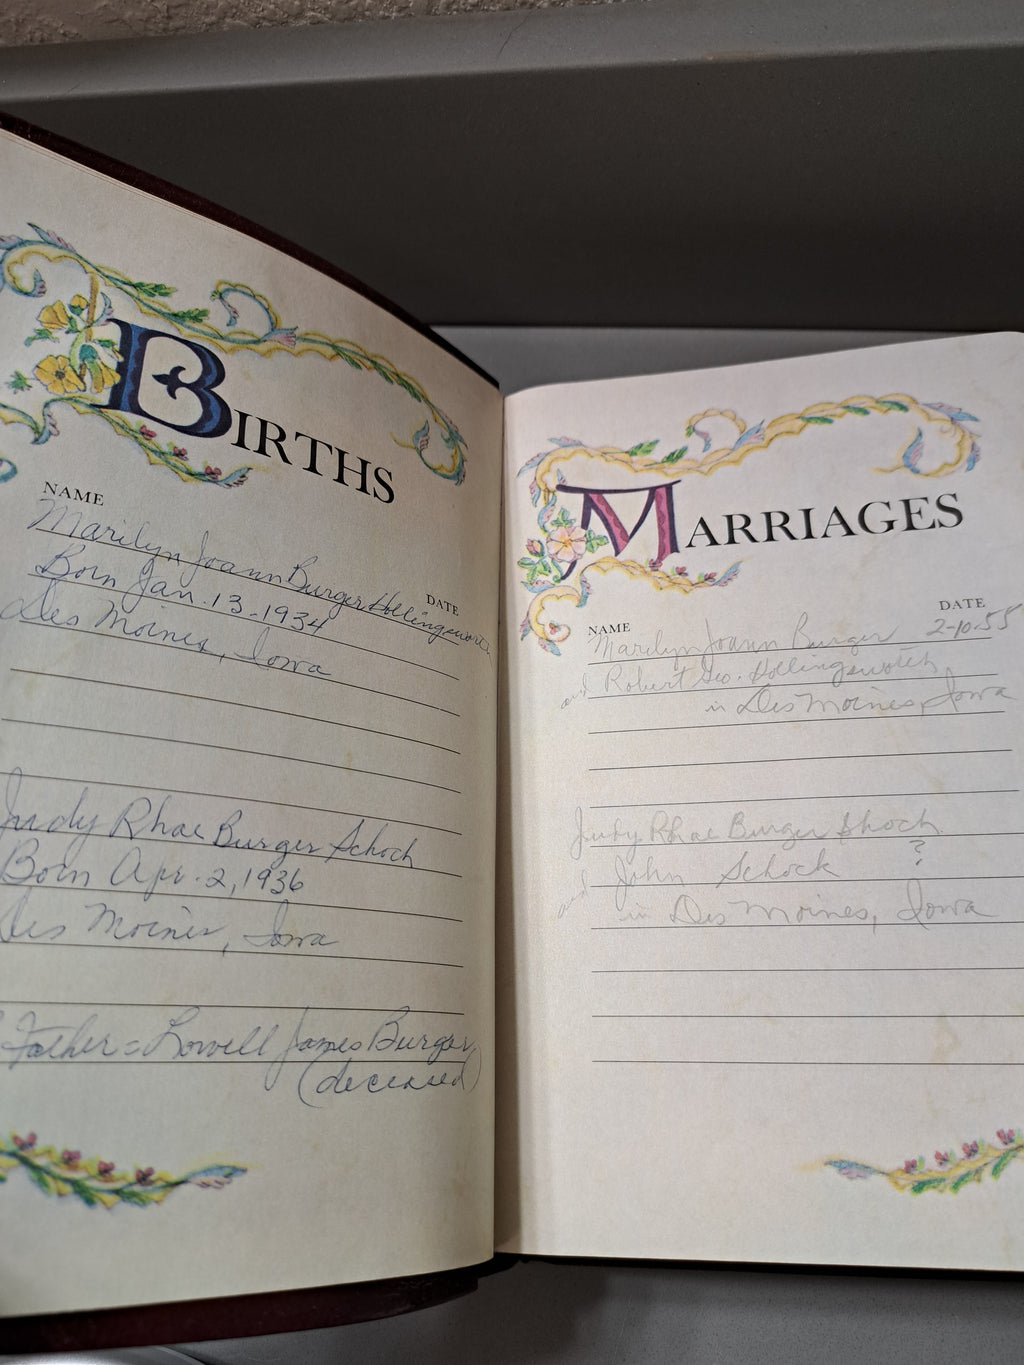 BIRTHS
NAME
DATE
Marilyn Joann Burger Hollingsworth
Born Jan. 13-1934
Des Moines, Iowa
Judy Rhae Burger Schoch
Born Apr. 2, 1936
Des Moines, Iowa
Father = Lowell James Burger
(deceased)
MARRIAGES
NAME
DATE
Marilyn Joann Burger 2-10-55
and Robert Geo. Hollingsworth
in Des Moines, Iowa
Judy Rhae Burger Shoch
and John Schock ?
in Des Moines, Iowa